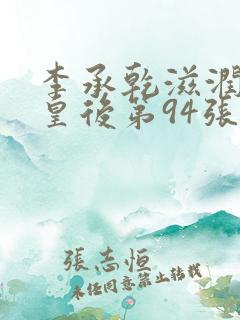 李承乾滋潤
皇後第94張
張志恒
未经同意禁止转载